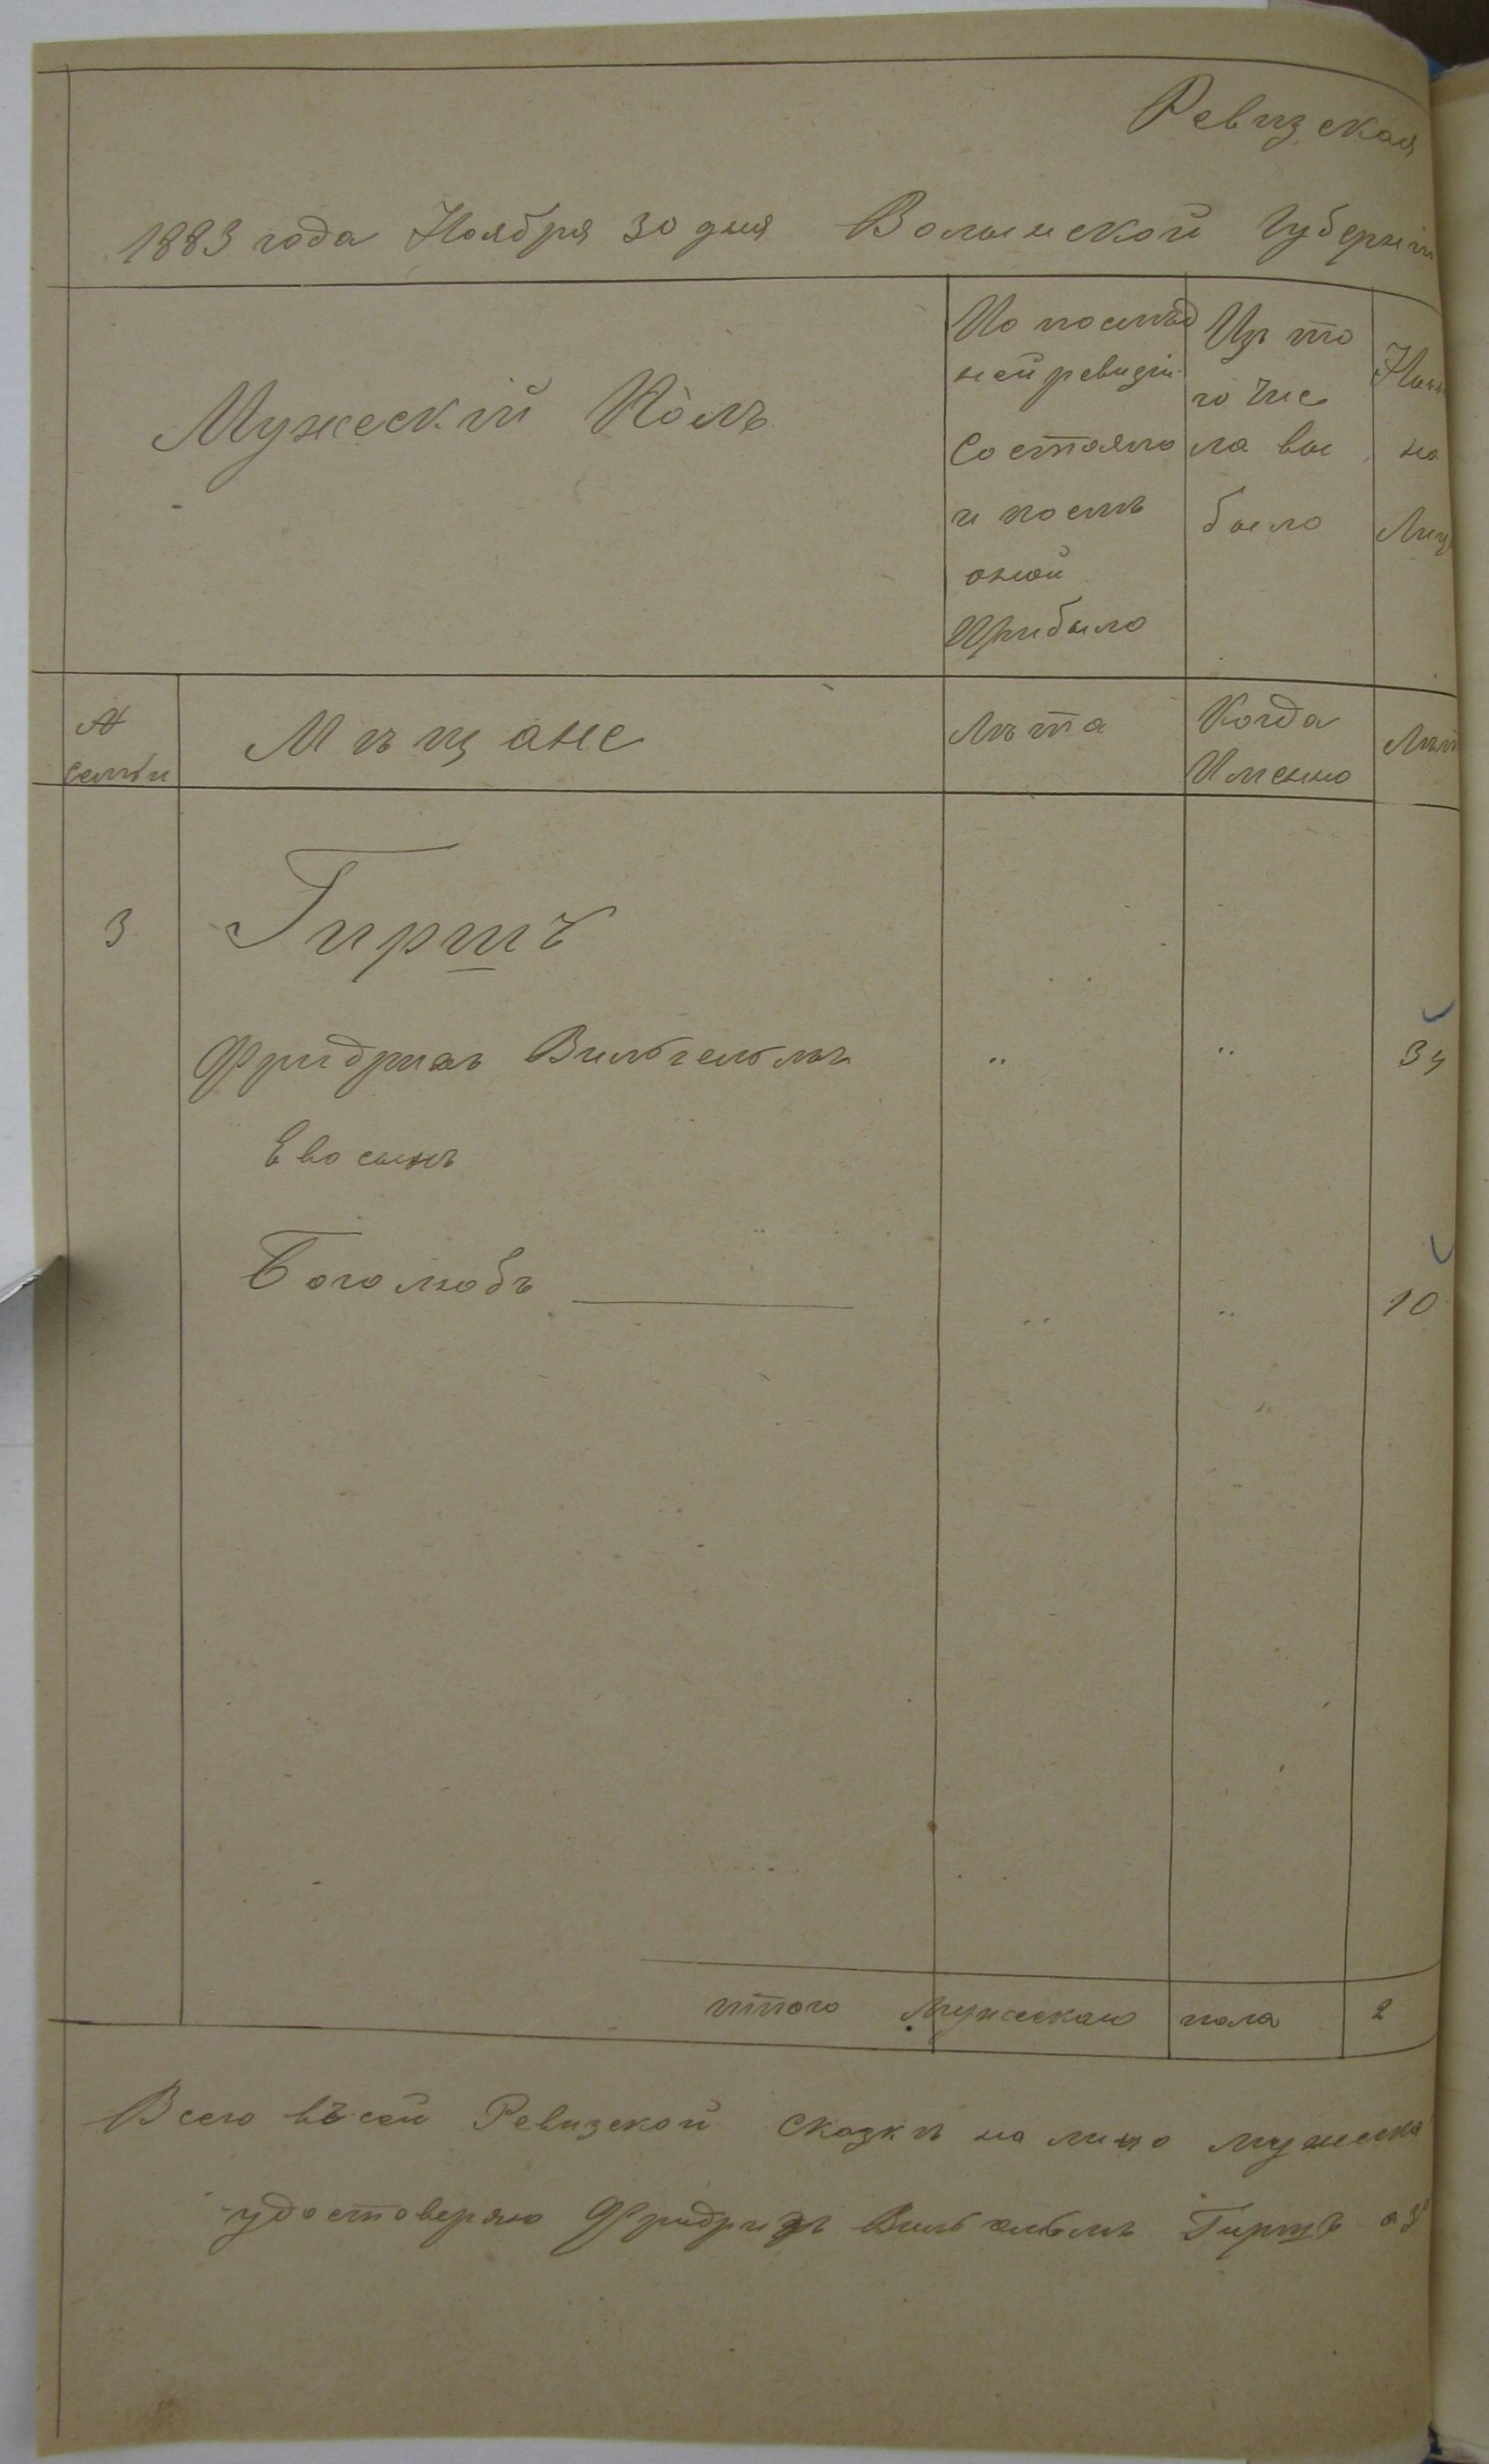 Ревизская
1883 года Ноября 30 дня Волынской Губерніи
Мужескій Полъ
По послѣд
ней ревизіи
Состояло
и послѣ
оной
Прибыло
Изъ то
го чис
ла вы
было
Нын
на
Лиц
№
семьи
Мѣщане
Лѣта
Когда
Именно
Лѣт
3 Гиршъ
Фридрихъ Вильгельмъ " " 34
Ево сынъ
Боголюбъ " " 10
итого Мужескаго пола 2
Всего въ сей Ревизской Сказкѣ на лицо мужеска
удостоверяю Фридрихъ Вильгельмъ Гиршъ